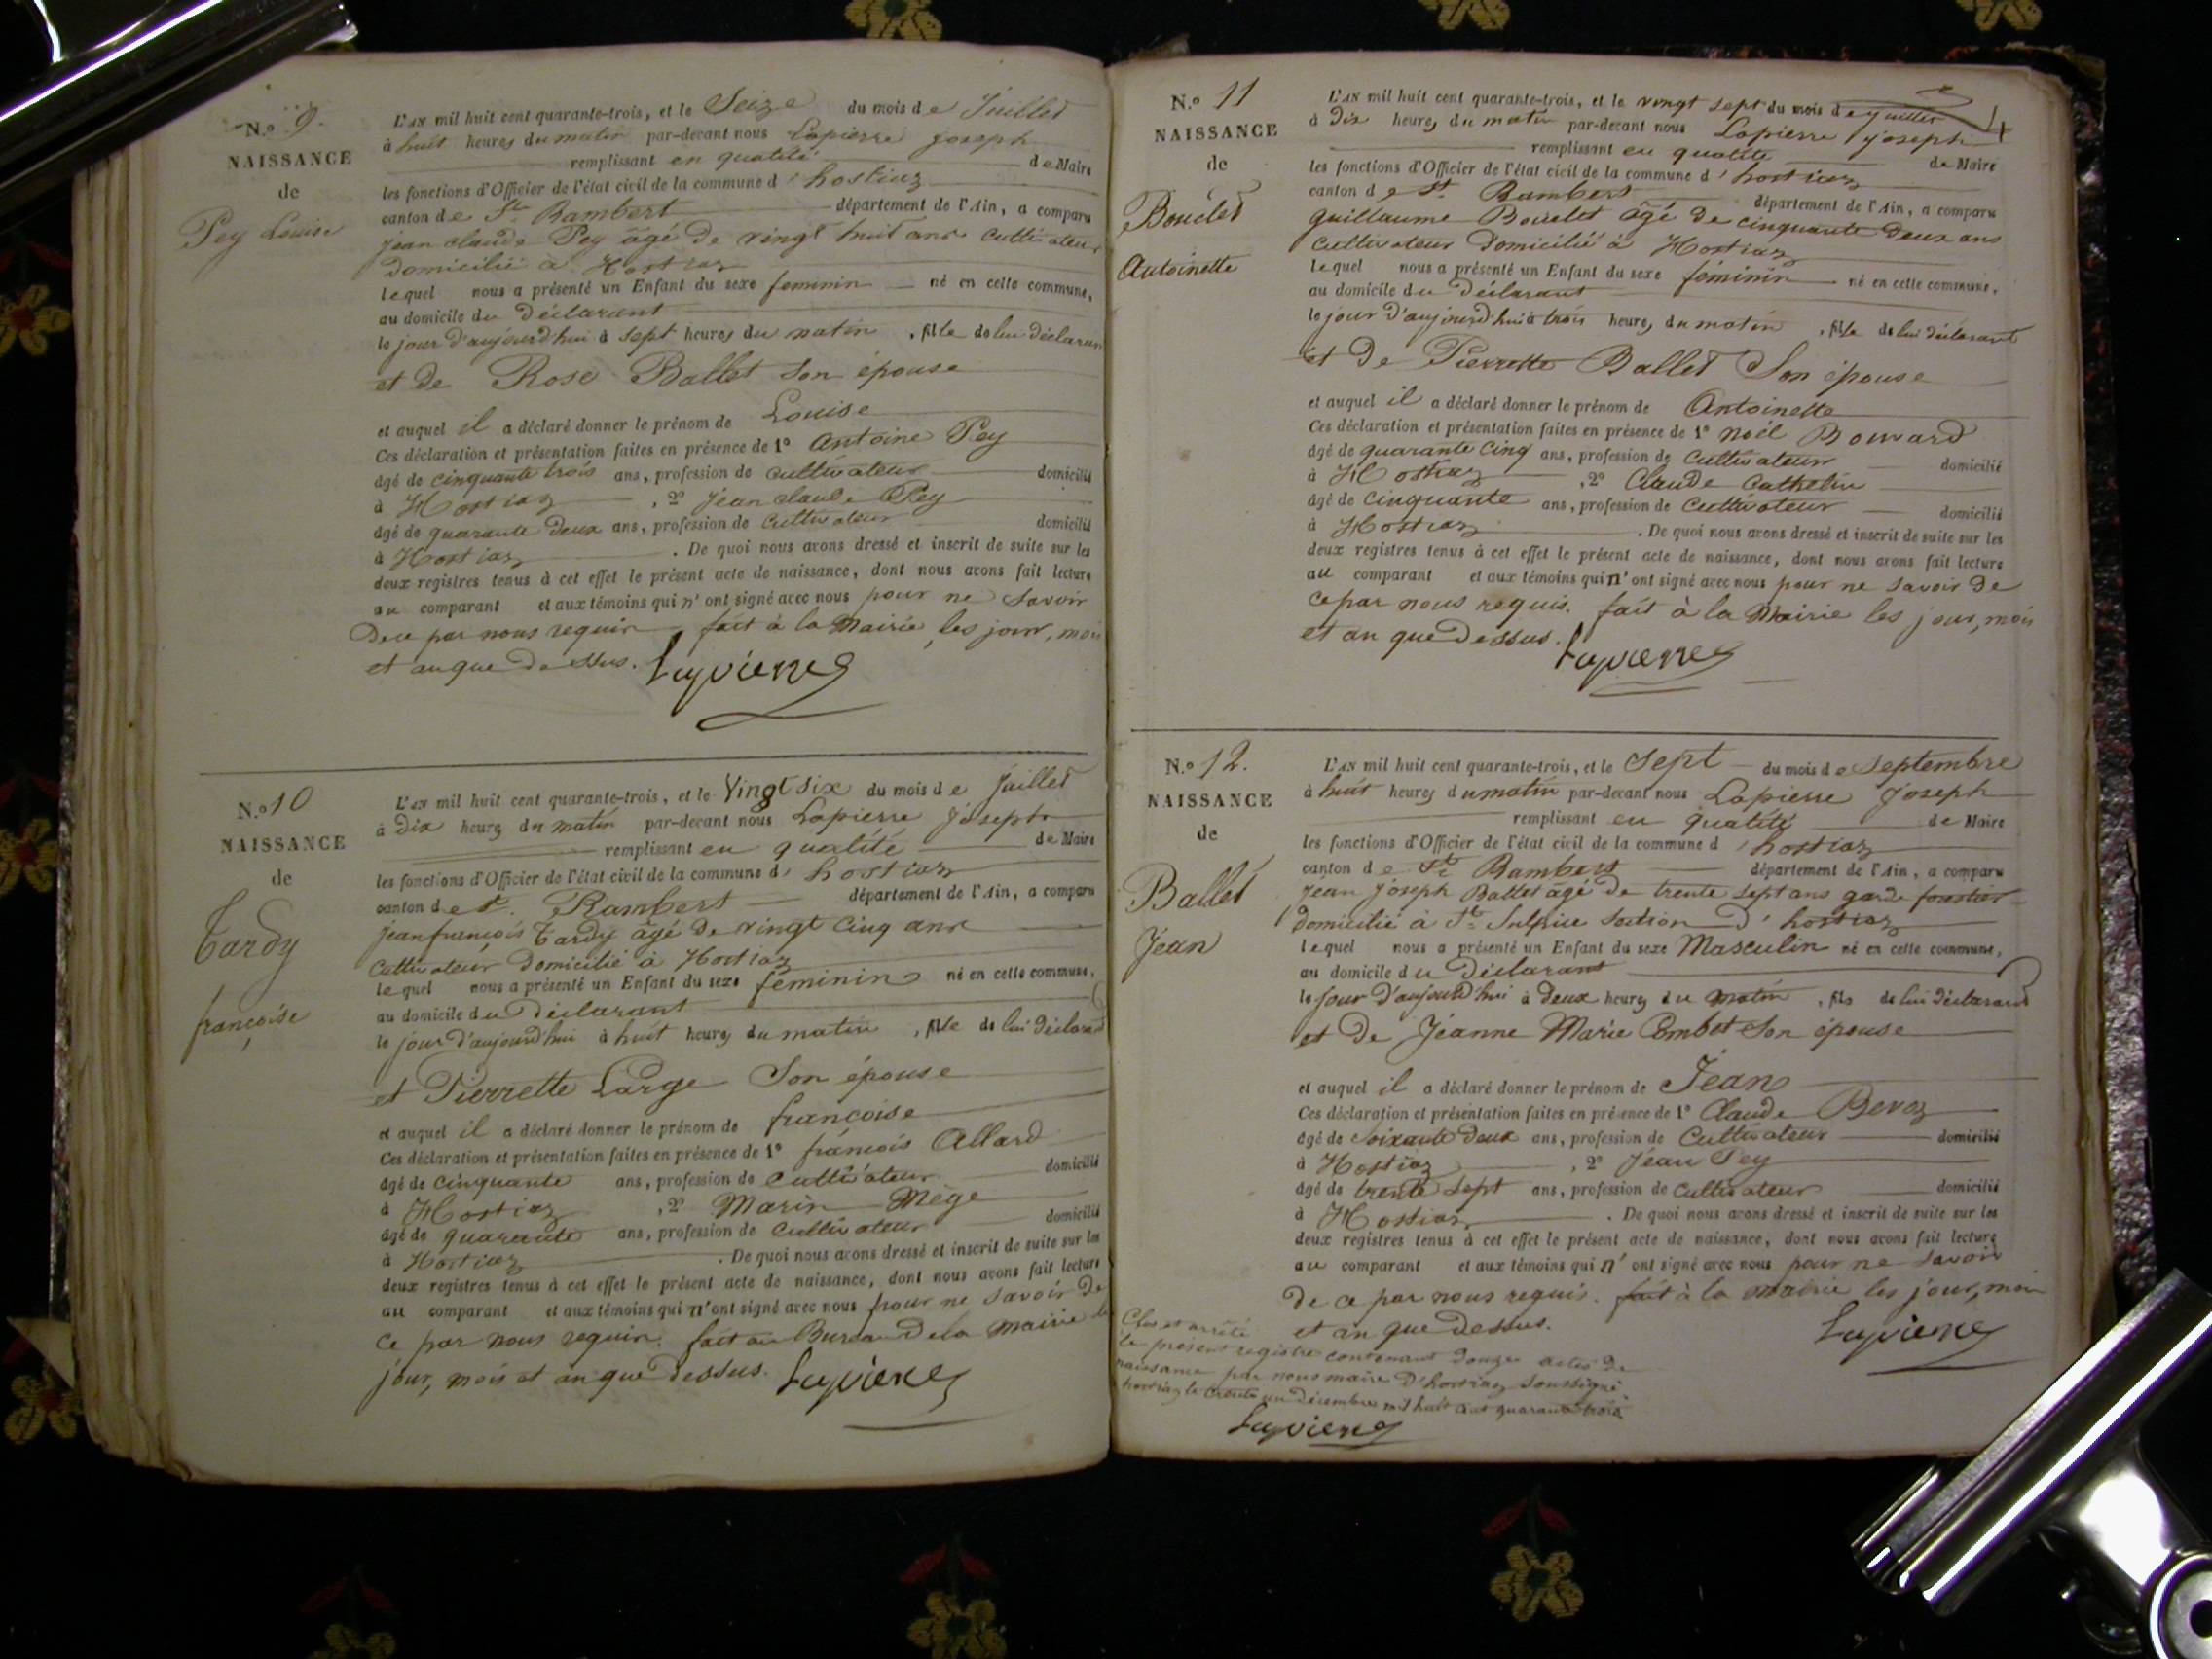 N.o 9.
NAISSANCE
de
Pey Louise
L'AN mil huit cent quarante-trois, et le Seize du mois de Juillet
à huit heures du matin par-devant nous Lapierre Joseph
remplissant en qualité de Maire
les fonctions d'Officier de l'état civil de la commune d'hostiaz
canton de St Rambert département de l'Ain, a comparu
jean claude Pey âgé de vingt huit ans cultivateur
domicilié à Hostiaz
lequel nous a présenté un Enfant du sexe feminin né en cette commune,
au domicile du déclarant
le jour d'aujourd'hui à sept heures du matin, fille de lui déclarant
et de Rose Ballet son épouse
et auquel il a déclaré donner le prénom de Louise
Ces déclaration et présentation faites en présence de 1o Antoine Pey
âgé de cinquante trois ans, profession de cultivateur domicilié
à Hostiaz, 2o Jean claude Pey
âgé de quarante deux ans, profession de cultivateur domicilié
à Hostiaz. De quoi nous avons dressé et inscrit de suite sur les
deux registres tenus à cet effet le présent acte de naissance, dont nous avons fait lecture
au comparant et aux témoins qui n'ont signé avec nous pour ne savoir
de ce par nous requis fait à la Mairie, les jour, mois
et an que dessus. Lapierre
N.o 10
NAISSANCE
de
Tardy
françoise
L'AN mil huit cent quarante-trois, et le Vingt six du mois de Juillet
à dix heures du matin par-devant nous Lapierre Joseph
remplissant en qualité de Maire
les fonctions d'Officier de l'état civil de la commune d'hostiaz
canton de St. Rambert département de l'Ain, a comparu
Jean françois Tardy âgé de vingt cinq ans
cultivateur domicilié à Hostiaz
lequel nous a présenté un Enfant du sexe féminin né en cette commune,
au domicile du déclarant
le jour d'aujourd'hui à huit heures du matin, fille de lui déclarant
et Pierrette Large Son épouse
et auquel il a déclaré donner le prénom de françoise
Ces déclaration et présentation faites en présence de 1o françois Allard
âgé de cinquante ans, profession de cultivateur domicilié
à Hostiaz, 2o Marin Mège
âgé de quarante ans, profession de cultivateur domicilié
à Hostiaz. De quoi nous avons dressé et inscrit de suite sur les
deux registres tenus à cet effet le présent acte de naissance, dont nous avons fait lecture
au comparant et aux témoins qui n'ont signé avec nous pour ne savoir de
ce par nous requis. fait au Bureau de la mairie les
jour, mois et an que dessus. Lapierre
N.o 11
NAISSANCE
de
Bouclet
Antoinette
L'AN mil huit cent quarante-trois, et le vingt sept du mois de juillet
à dix heures du matin par-devant nous Lapierre joseph
remplissant en qualité de Maire
les fonctions d'Officier de l'état civil de la commune d'hostiaz
canton de St Rambert département de l'Ain, a comparu
Guillaume Bouclet âgé de cinquante deux ans
cultivateur domicilié à Hostiaz
lequel nous a présenté un Enfant du sexe féminin né en cette commune,
au domicile du déclarant
le jour d'aujourd'hui à trois heures du matin, fille de lui déclarant
et de Pierrette Ballet Son épouse
et auquel il a déclaré donner le prénom de Antoinette
Ces déclaration et présentation faites en présence de 1o Noël Bouvard
âgé de quarante cinq ans, profession de cultivateur domicilié
à Hostiaz, 2o Claude Cathelin
âgé de cinquante ans, profession de cultivateur domicilié
à Hostiaz. De quoi nous avons dressé et inscrit de suite sur les
deux registres tenus à cet effet le présent acte de naissance, dont nous avons fait lecture
au comparant et aux témoins qui n'ont signé avec nous pour ne savoir de
ce par nous requis. fait à la Mairie les jour, mois
et an que dessus. Lapierre
N.o 12.
NAISSANCE
de
Ballet
Jean
L'AN mil huit cent quarante-trois, et le Sept du mois de Septembre
à huit heures du matin par-devant nous Lapierre Joseph
remplissant en qualité de Maire
les fonctions d'Officier de l'état civil de la commune d'hostiaz
canton de St Rambert département de l'Ain, a comparu
Jean Joseph Ballet âgé de trente sept ans garde forestier
domicilié à St Sulpice Section d'hostiaz
lequel nous a présenté un Enfant du sexe Masculin né en cette commune,
au domicile du déclarant
le jour d'aujourd'hui à deux heures du matin, fils de lui déclarant
et de Jeanne Marie Combet Son épouse
et auquel il a déclaré donner le prénom de Jean
Ces déclaration et présentation faites en présence de 1o Claude Bevoz
âgé de soixante deux ans, profession de Cultivateur domicilié
à Hostiaz, 2o Jean Pey
âgé de trente sept ans, profession de cultivateur domicilié
à Hostiaz. De quoi nous avons dressé et inscrit de suite sur les
deux registres tenus à cet effet le présent acte de naissance, dont nous avons fait lecture
au comparant et aux témoins qui n'ont signé avec nous pour ne savoir
de ce par nous requis. fait à la mairie les jour, mois
et an que dessus. Lapierre
Clos et arrêté
le présent registre contenant douze actes de
naissance par nous maire d'hostiaz soussigné.
hostiaz le trente un décembre mil huit cent quarante trois
Lapierre